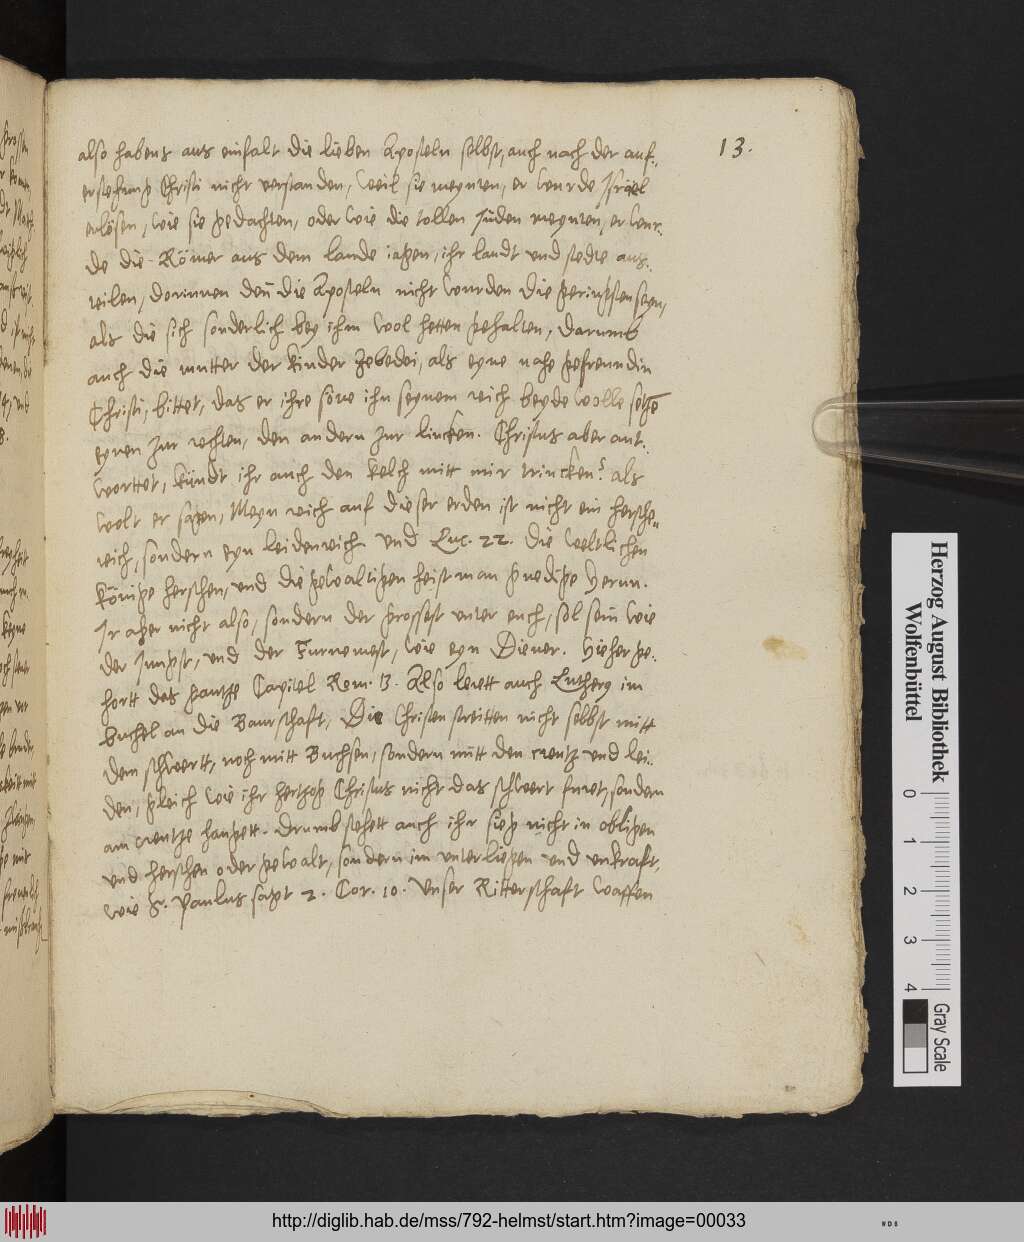 13.
also habens aus einfalt die lieben Aposteln selbst, auch nach der auf-
erstehung Christi nicht verstanden, weil sie meynten, er wurde Israel
erlösen, wie sie gedachten, oder wie die tollen Jüden meynten, er wur-
de die Römer aus dem lande iagen, ihr landt und stedte aus-
teilen, dorinnen deñ die Aposteln nicht wurden die geringsten seyn,
als die sich sonderlich bey ihm wol hetten gehalten, darumb
auch die mutter der kinder Zebedei, als eyne nahe gefreundin
Christi, bittet, das er ihre söne ihn seynem reich beyde wolle setzē
eynen zur rechten, den andern zur lincken. Christus aber ant-
worttet, kündt ihr auch den kelch mitt mir trincken? als
wolt er sagen, Meyn reich auf dieser erden ist nicht ein hersche-
reich, sondern eyn leidenreich und Luc. 22. Die weltlichen
könige herschen, und die gewaltigen heist man gnedige Herrn.
Ir aber nicht also, sondern der grossest unter euch, sol sein wie
der Jungst, und der Furnemest, wie eyn Diener. Hieher ge-
hortt das gantze Capitel Rom. 13. Also lerett auch Lutherus im
buchel an die Baurschaft, Die Christen streitten nicht selbst mitt
dem schwertt, noch mitt Buchsen, sondern mitt den creutz und lei-
den, gleich wie ihr hertzog Christus nicht das schwert furet, sondern
am creutze hangett. Drumb stehett auch ihr sieg nicht in obligen
und herschen oder gewalt, sondern im unterliegen und unkraft,
wie S. Paulus sagt 2. Cor. 10. Unser Ritterschaft waffen
Herzog August Bibliothek
Wolfenbüttel
0 1 2 3 4
Gray Scale
http://diglib.hab.de/mss/792-helmst/start.htm?image=00033